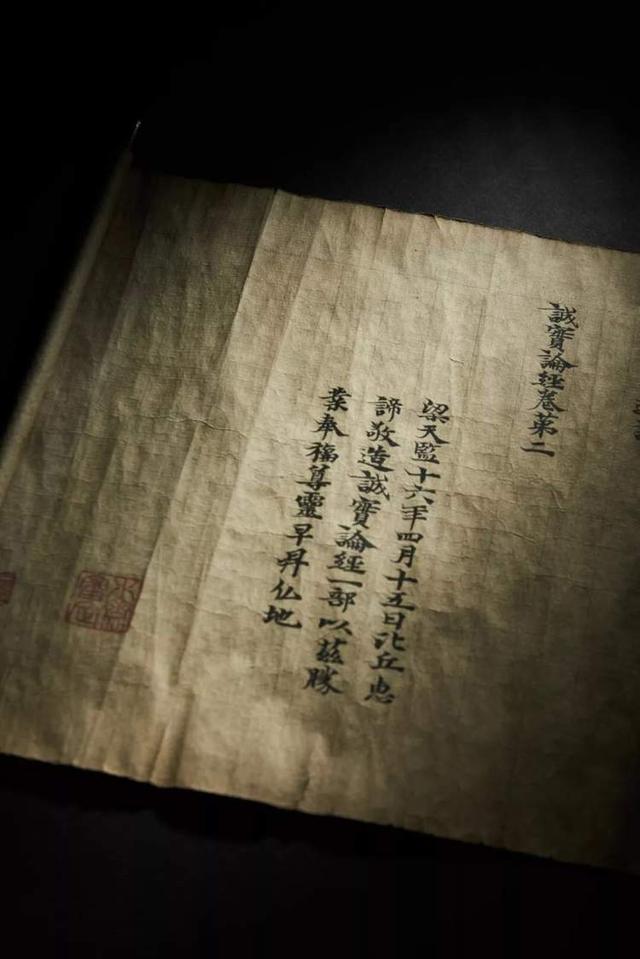 誠實論經卷第二
梁天監十六年四月十五日比丘惠
諦敬造誠實論經一部以茲勝
業奉福尊靈早升仏地